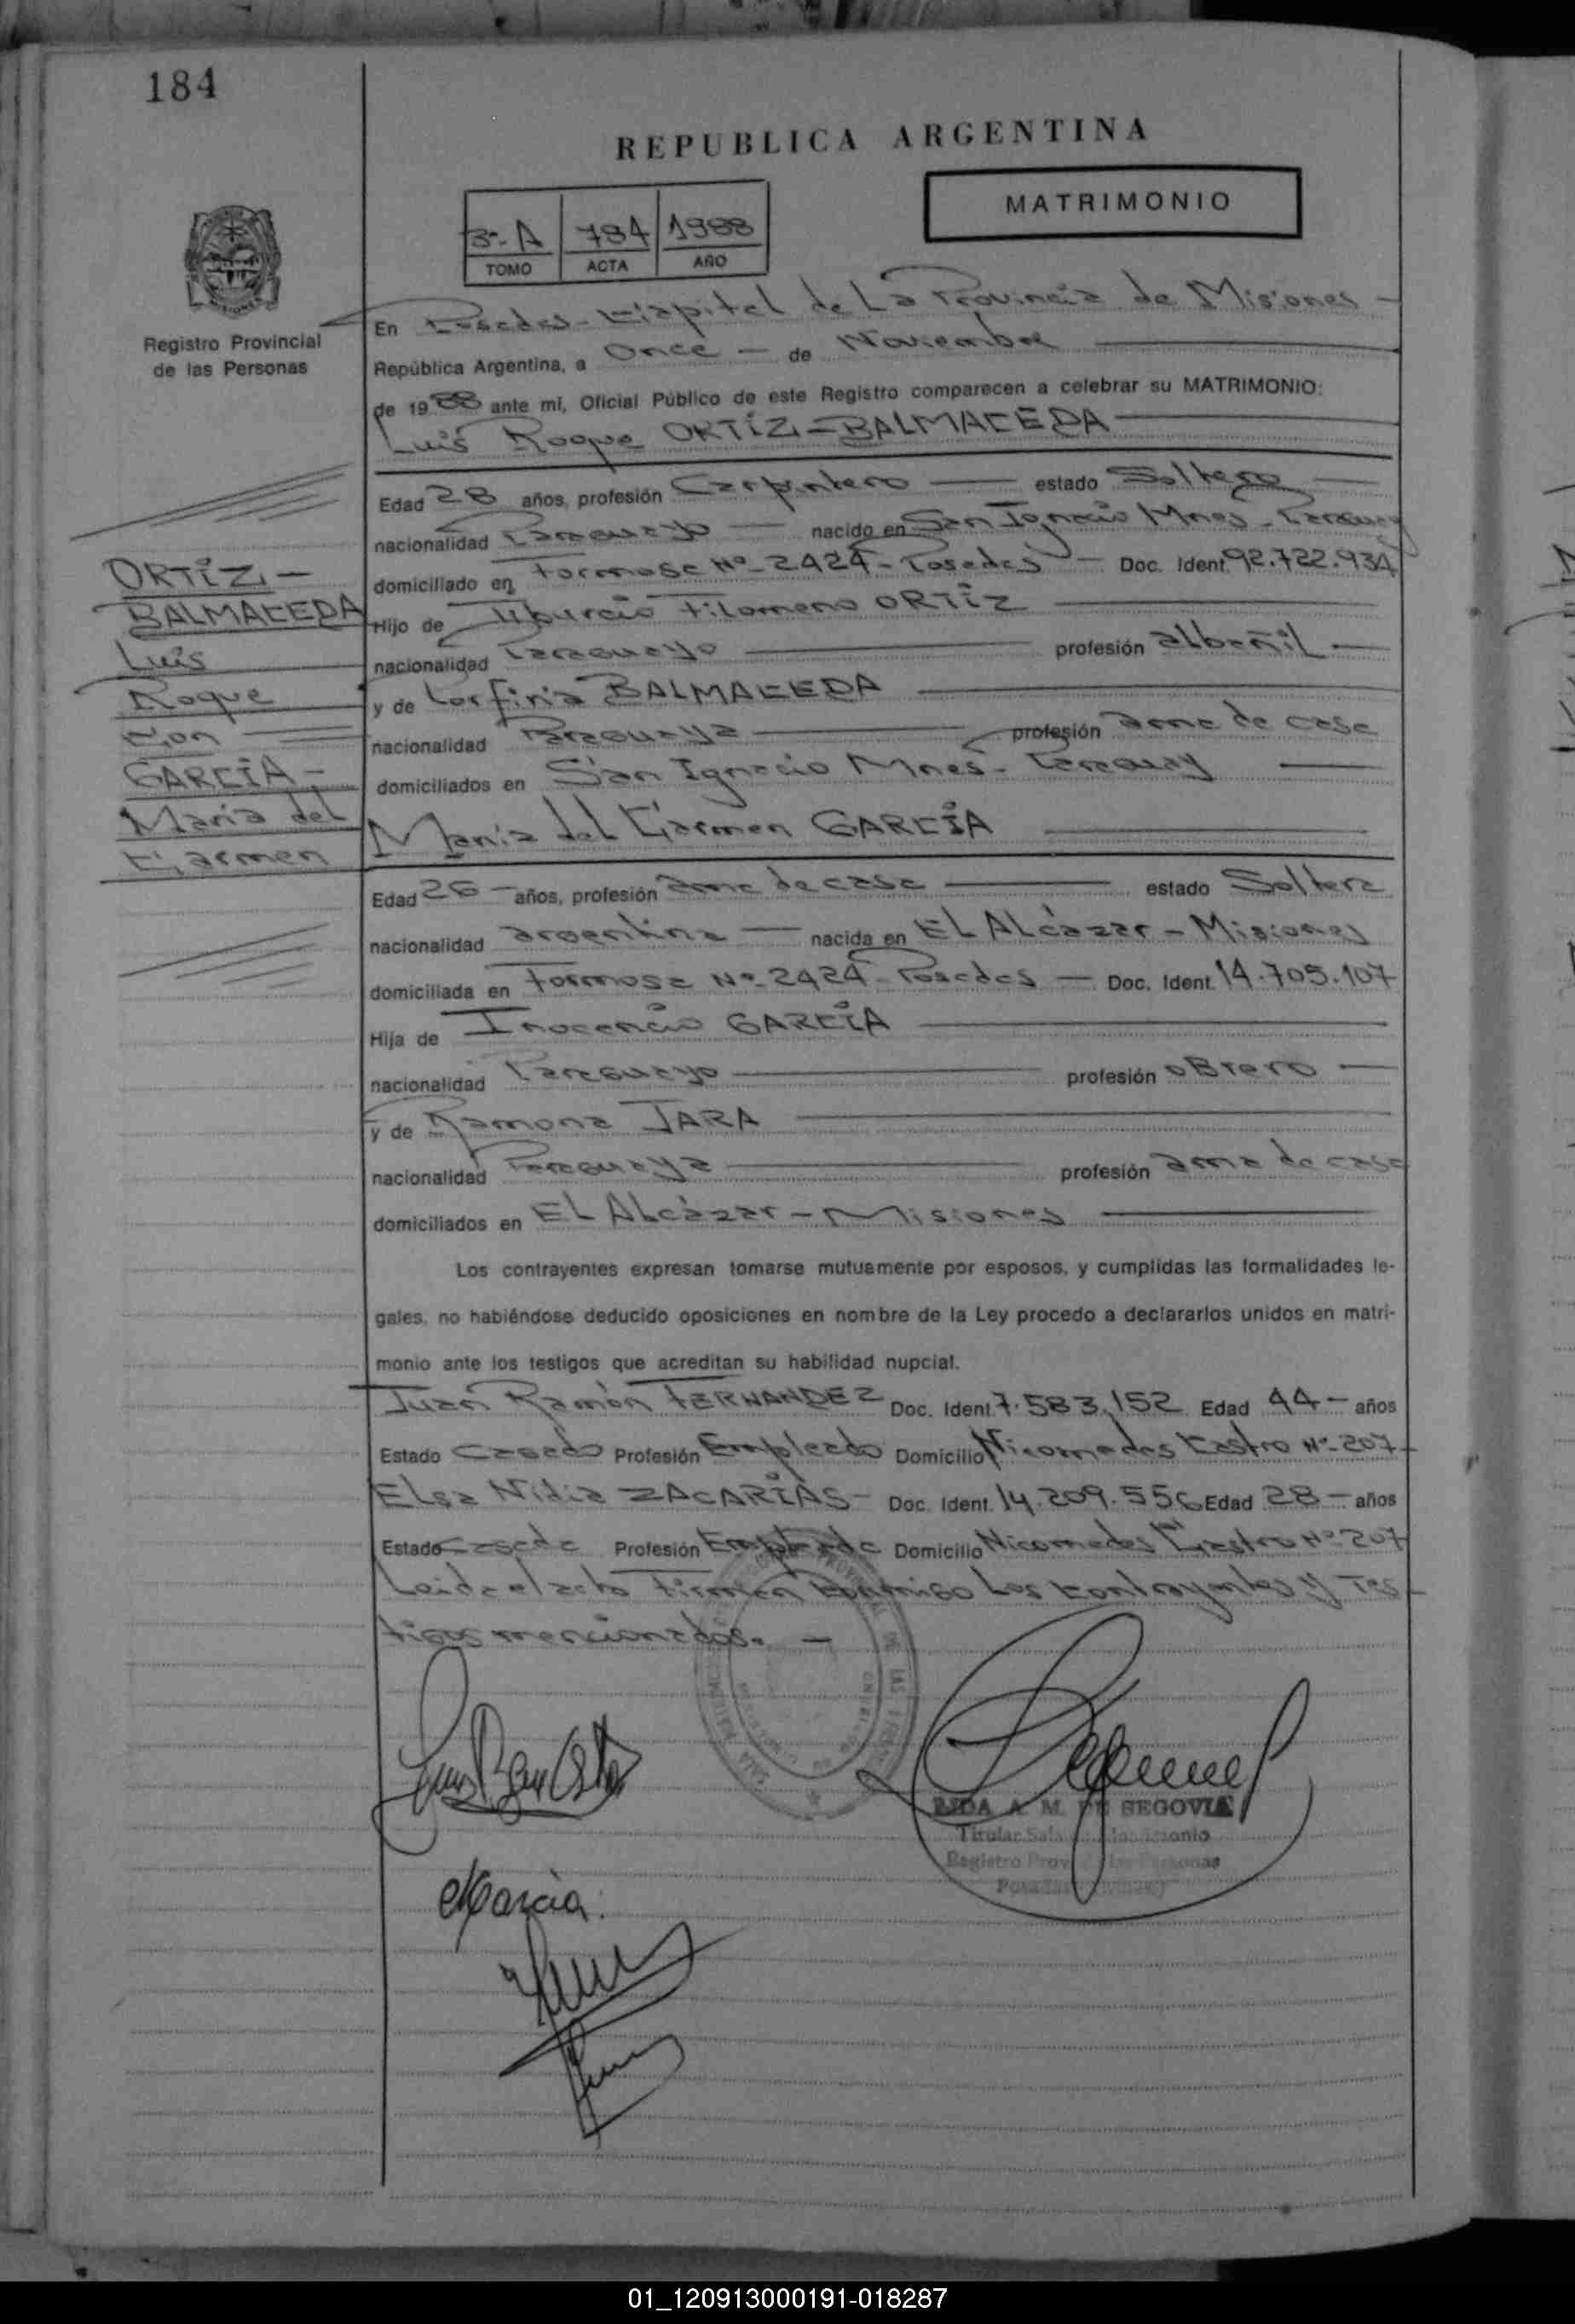 184
REPUBLICA ARGENTINA
MATRIMONIO
3º-A 784 1988
TOMO ACTA AÑO
Registro Provincial
de las Personas
En Posadas - Capital de La Provincia de Misiones -
República Argentina, a Once - de Noviembre
de 1988 ante mí, Oficial Público de este Registro comparecen a celebrar su MATRIMONIO:
Luis Roque ORTIZ - BALMACEDA
Edad 28 años, profesión Carpintero estado Soltero
nacionalidad Paraguayo nacido en San Ignacio Mnes - Paraguay
domiciliado en Formosa Nº 2424 - Posadas - Doc. Ident. 92.722.934
Hijo de Tiburcio Filomeno ORTIZ
nacionalidad Paraguayo profesión albañil
y de Porfiria BALMACEDA
nacionalidad Paraguaya profesión ama de casa
domiciliados en San Ignacio Mnes - Paraguay
María del Carmen GARCÍA
Edad 26 - años, profesión ama de casa estado Soltera
nacionalidad argentina nacida en EL Alcázar - Misiones
domiciliada en Formosa Nº 2424 - Posadas - Doc. Ident. 14.705.107
Hija de Inocencio GARCÍA
nacionalidad Paraguayo profesión obrero
y de Ramona JARA
nacionalidad Paraguaya profesión ama de casa
domiciliados en EL Alcázar - Misiones
ORTIZ -
BALMACEDA
Luis
Roque
Con
GARCÍA -
María del
Carmen
Los contrayentes expresan tomarse mutuamente por esposos, y cumplidas las formalidades le-
gales, no habiéndose deducido oposiciones en nombre de la Ley procedo a declararlos unidos en matri-
monio ante los testigos que acreditan su habilidad nupcial.
Juan Ramón FERNANDEZ Doc. Ident. 7.583.152 Edad 44 - años
Estado Casado Profesión Empleado Domicilio Nicomedes Castro Nº 207
Elsa Nidia ZACARÍAS - Doc. Ident. 14.209.556 Edad 28 - años
Estado Casada Profesión Empleada Domicilio Nicomedes Castro Nº 207
Leída el acta Firman Conmigo Los Contrayentes y Tes-
tigos mencionados. -
MGarcia
LIDA A. M. DE SEGOVIA
Titular Sala Matrimonio
Registro Prov. de las Personas
01_120913000191-018287